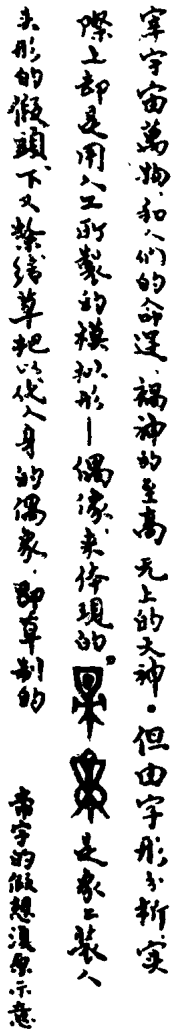 宰宇宙萬物和人們的命运、禍神的至高无上的天神。但由字形分析,实
際上却是用人工所製的模拟形—偶像来体現的。是象上裝人
头形的假頭、下又紮結草把以代人身的偶象,即草制的
帝字的假想復原示意